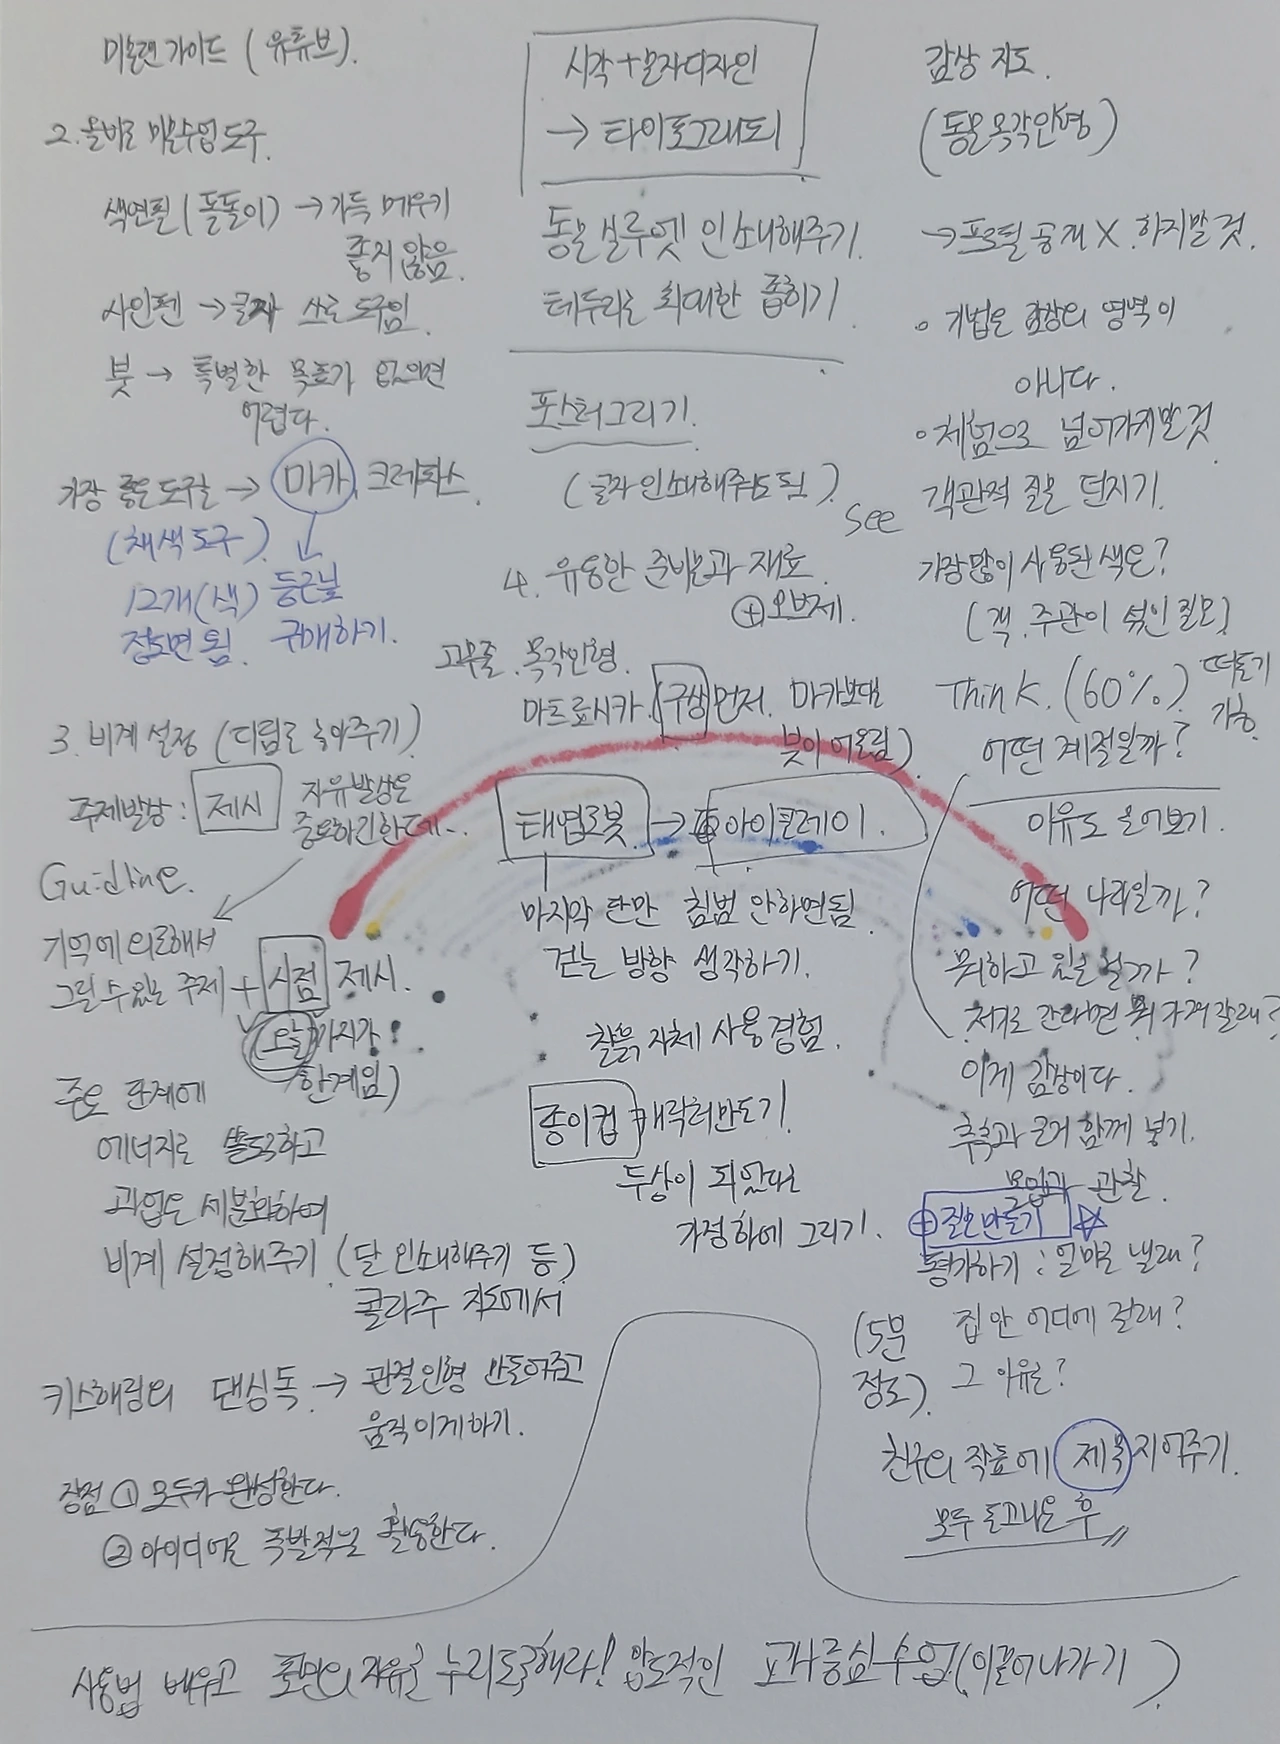 미술관 가이드 (유튜브).
2. 올바른 미술수업 도구.
색연필 (돌돌이) → 가득 메우기
좋지 않음.
사인펜 → 글자 쓰는 도구임.
붓 → 특별한 목표가 없으면
어렵다.
가장 좋은 도구는 → 마카, 크레파스.
(채색도구)
12개(색) 둥근날
정도면 됨. 구매하기.
3. 비계 설정 (디딤돌 놓아주기)
주제발상 : 제시
자유발상은
중요하긴한데..
Guidline.
기억에 의존해서
그릴 수 있는 주제 + 시점 제시.
가지가
한계임)
주요 단계에
에너지를 쏟도록하고
과업은 세분화하여
비계 설정해주기. (달 인쇄해주기 등)
콜라주 지도에서
키스해링의 댄싱독 → 관절인형 만들어주고
움직이게하기.
장점 ① 모두가 완성한다.
② 아이디어를 폭발적으로 활용한다.
시각 + 문자디자인
→ 타이포그래피
동물 실루엣 인쇄해주기.
테두리는 최대한 좁히기
포스터그리기.
(글자 인쇄해줘도 됨)
4. 유용한 준비물과 재료
⊕ 오브제.
고무줄. 목각인형.
마트료시카. (구상먼저. 마카보단
붓이 어울림)
태엽로봇 → 아이클레이.
마지막 단만 침범 안하면됨.
걷는 방향 생각하기.
찰흙 자체 사용 경험.
종이컵 캐릭터만들기.
두상이 되었다는
가정하에 그리기.
감상 지도.
(동물 목각인형)
→ 프로필 공개 X. 하지말 것.
◦ 기법은 감상의 영역이
아니다.
◦ 체험으로 넘어가지말 것
see
객관적 질문 던지기.
가장 많이 사용된 색은?
(객. 주관이 섞인 질문)
Think. (60%)
어떤 계절일까?
이유도 물어보기.
어떤 나라일까?
뭐하고 있는 걸까?
저기로 간다면 뭐 가져갈래?
이게 감상이다.
추측과 근거 함께 넣기.
관찰.
⊕ 질문만들기 ☆
평가하기 : 얼마를 낼래?
(5분
정도)
집 안 어디에 걸래?
그 이유는?
친구의 작품에 제목 지어주기.
모두 돌고나온 후
사용법 배우고 표현의 자유를 누리도록해라! 압도적인 교과중심수업. (이끌어나가기)